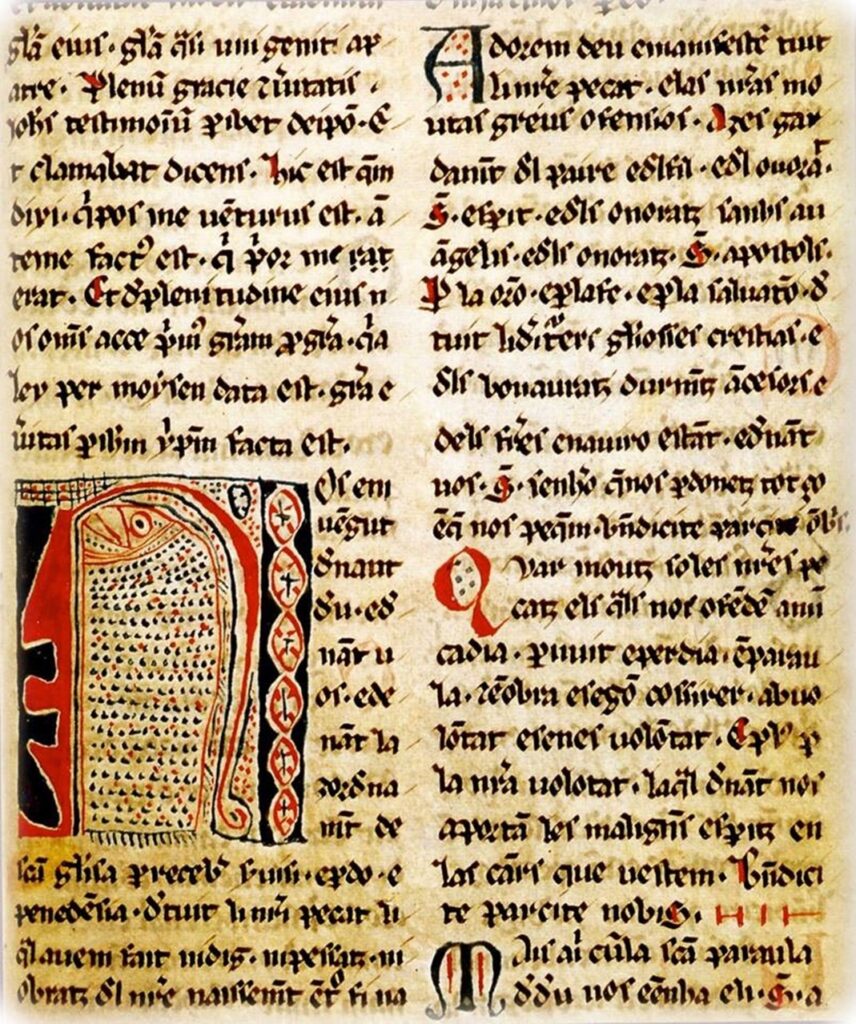 gl̃a eius · gl̃a q̃si unigeniti ap
atre · Plenũ gracie ⁊ ũitatis ·
iohs testimoĩu ꝑibet deipo · E
t clamabat dicens · hic est q̃m
dixi · q̃ pos me uẽturus est · ã
teme fact᾽ est · q̃ por me erat
erat · Et d̃plenitudine eius n
os om̃s acce pim᾽ gr̃am ꝑ gr̃a · q̃a
lex per moysen data est · gr̃a e
ũitas ꝑ ihm̃ xp̃m facta est ·
Nos em
uẽgut
d̃nant
d̃u · ed̃
nãt u
os · ede
nãt la
zord̃na
mt̃ de
scã gl̃isa ꝑ receb᾽ suisi · eꝑdo · e
penedẽsia · d̃tuit li nr̃i pecat li
q̃l auem fait nidig · nipessatz · ni
obratz d̃l nr̃e naissemt̃ ẽt᾽
Adorem deu emanifestẽ tuit
li nr̃e pecat · elas nr̃as mo
utas greus ofensios · Azes gar
danm̃t d̃l paire ed̃lfil · ed̃l onorã
S · esp̃it · ed̃ls onoratz sanhs au
ãgelis · ed̃ls onoratz · S · apostols ·
P la orõ · eꝑlafe · eꝑla saluatõ · d̃
tuit li dit̃ers gl̃iosses crestias · e
d̃ls bonauratz durmẽtz ãcesors e
dels fr̃es enauiro estãt · ed̃nãt
uos · S · senhõ q̃nos ꝑdonetz tot zo
ẽq̃ nos pecam · bñdicite parcite obis
Qvar moutz sõles nr̃es pe
catz els q̃ls nos ofẽdẽ ami
cadia · ꝑ nuit eꝑerdia · ẽparau
la · ⁊ẽobra esegõ cossirer · abuo
lõtat esenes uolõtat · Eplus ꝑ
la nr̃a uolotat · laq̃l d̃nãt nos
aportã les malignes esp̃itz en
las cãrs que uestem · bñdici
te parcite nobis ·
Mais aĩ cũla scã paraula
d̃d̃u nos eẽnha els · S · a